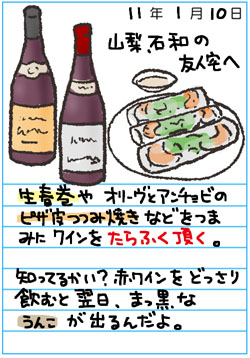 11年 1月 10日
山梨、石和の
友人宅へ
生春巻や オリーヴとアンチョビの
ピザ皮つつみ焼きなどをつま
みに ワインを たらふく頂く。
知ってるかい？赤ワインを どっさり
飲むと 翌日、まっ黒な
うんこ が出るんだよ。